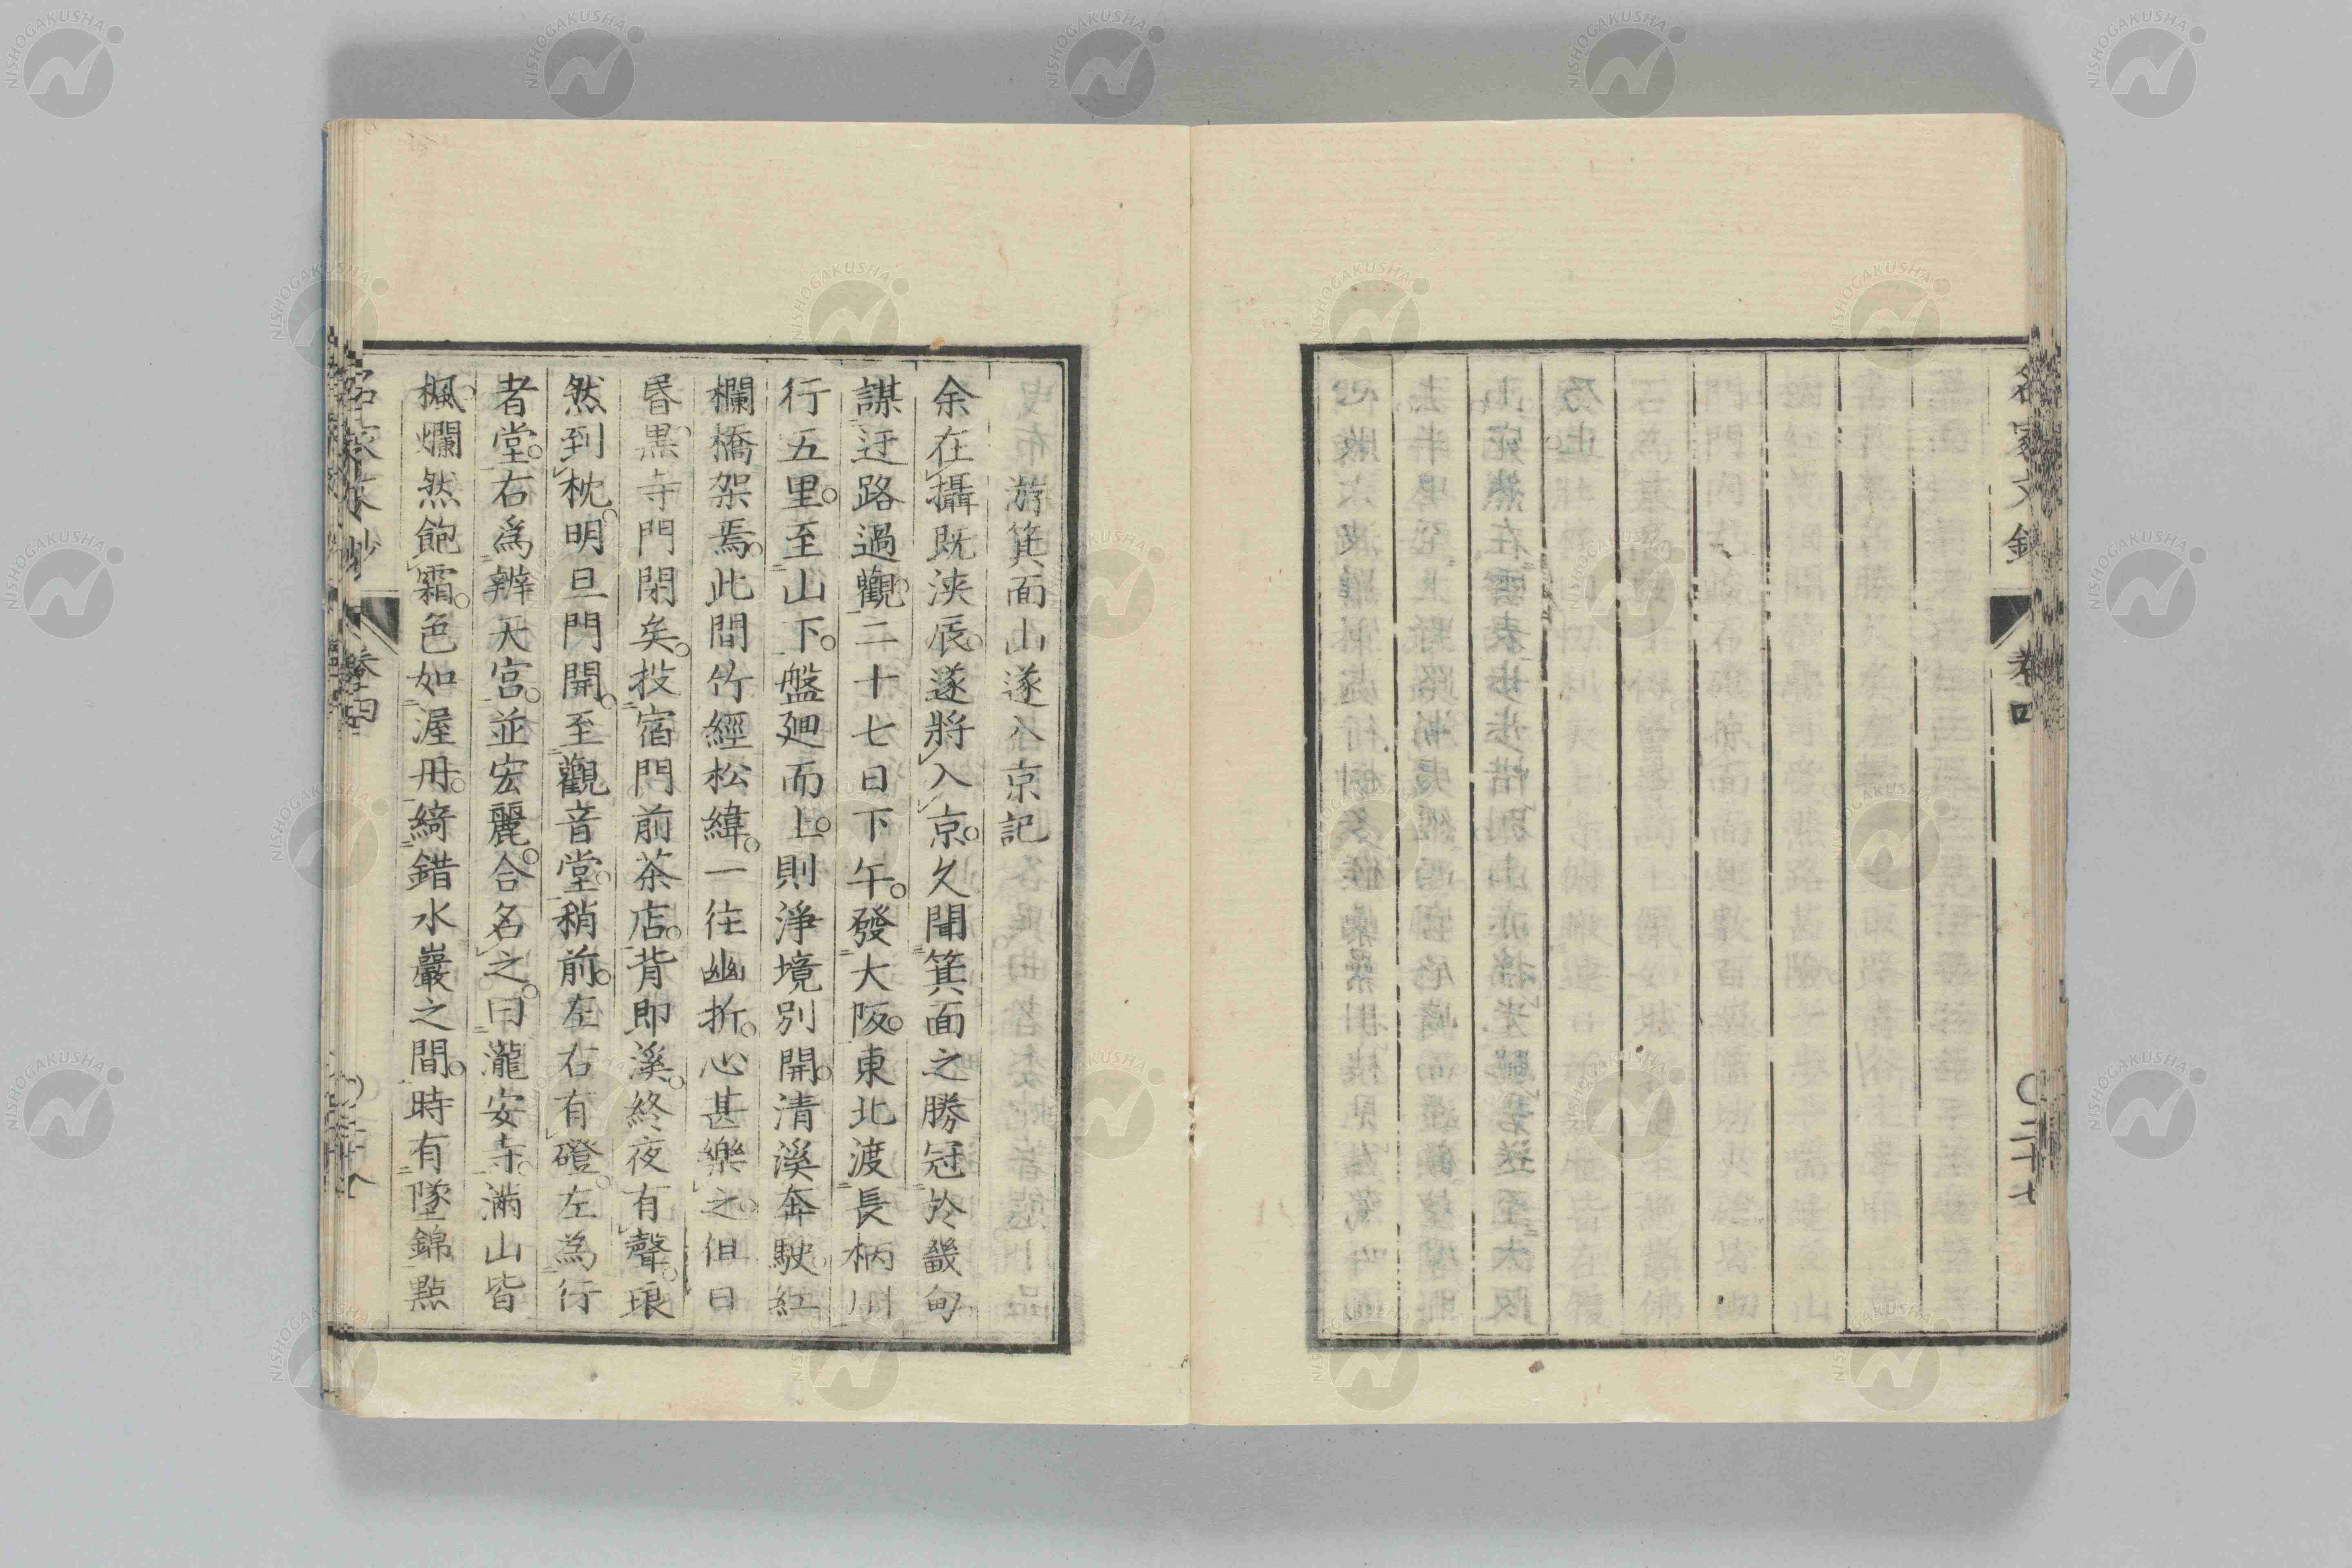 名家文錄 卷四 ○二十七
游箕面山遂入京記
余在攝既浹辰。遂將入京。久聞箕面之勝冠於畿甸
謀迂路過觀。二十七日下午。發大阪。東北渡長柄川
行五里。至山下。盤廻而上。則淨境別開。清溪奔駛。紅
欄橋架焉。此間竹經松緯。一往幽折。心甚樂之。但日
昏黑。寺門閉矣。投宿門前茶店。背即溪。終夜有聲。琅
然到枕。明旦門開。至觀音堂。稍前。左右有磴。左為行
者堂。右為辨天宮。並宏麗。合名之。曰瀧安寺。滿山皆
楓。爛然飽霜。色如渥丹。綺錯水巖之間。時有墜錦點
NISHOGAKUSHA